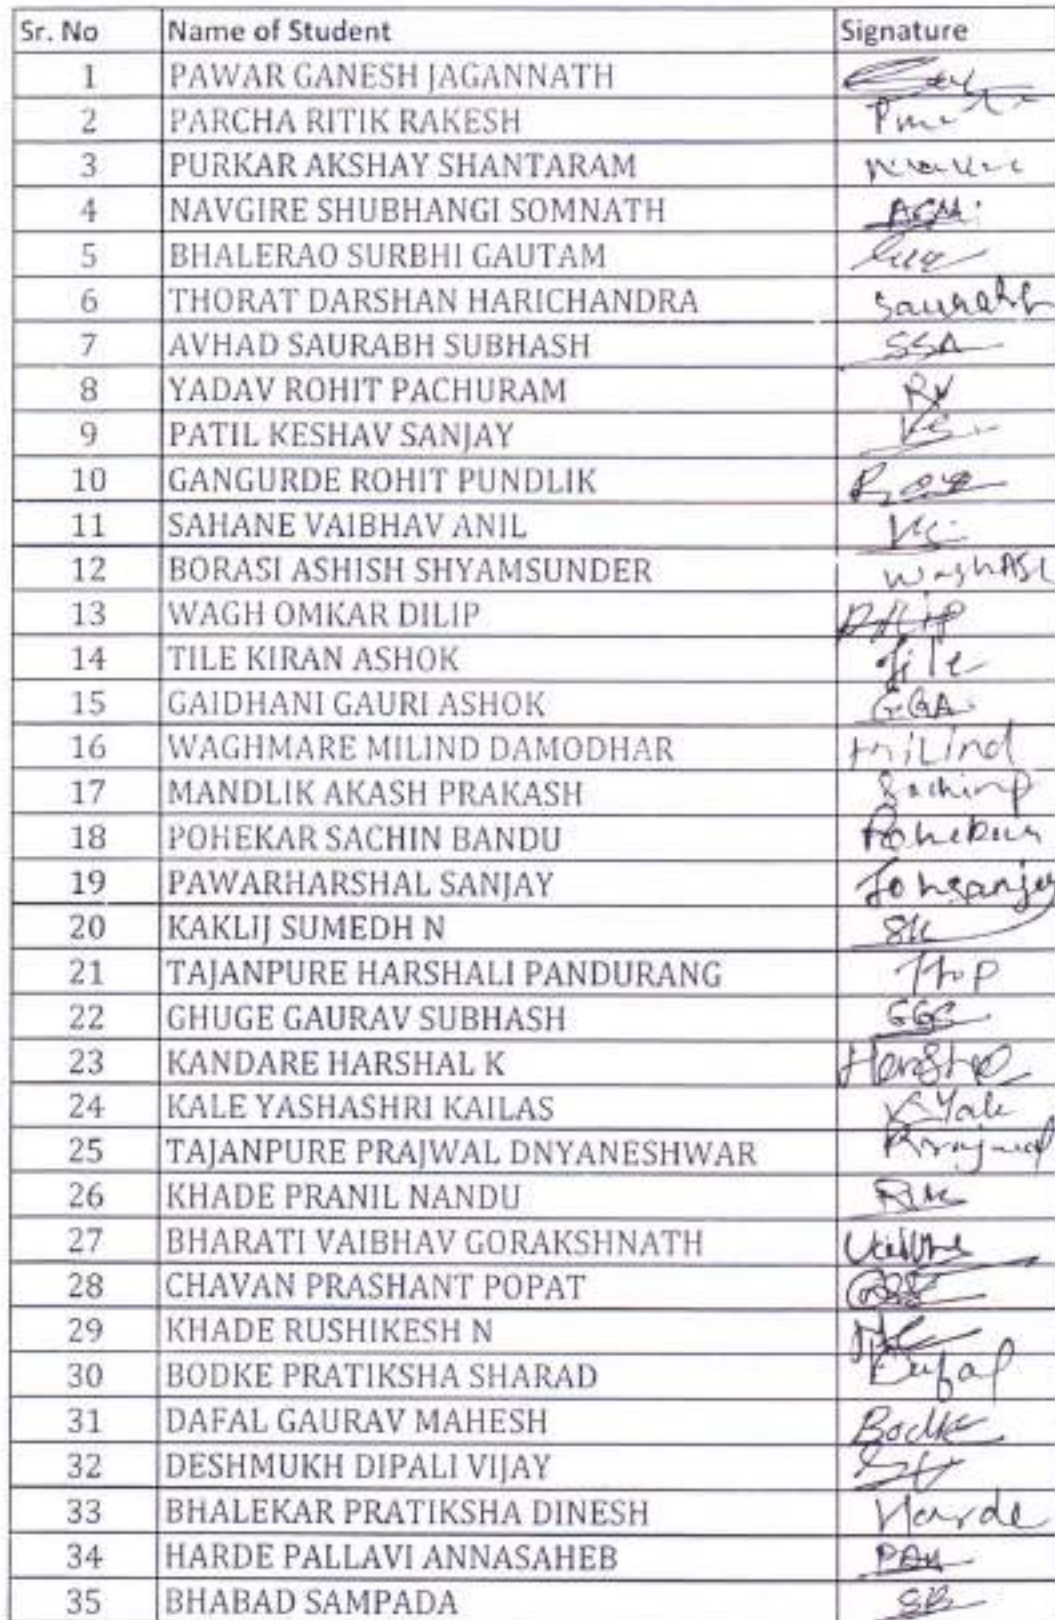 Sr. No Name of Student Signature
1 PAWAR GANESH JAGANNATH
2 PARCHA RITIK RAKESH
3 PURKAR AKSHAY SHANTARAM
4 NAVGIRE SHUBHANGI SOMNATH
5 BHALERAO SURBHI GAUTAM
6 THORAT DARSHAN HARICHANDRA Saurabh
7 AVHAD SAURABH SUBHASH SSA
8 YADAV ROHIT PACHURAM
9 PATIL KESHAV SANJAY
10 GANGURDE ROHIT PUNDLIK
11 SAHANE VAIBHAV ANIL
12 BORASI ASHISH SHYAMSUNDER
13 WAGH OMKAR DILIP Dilip
14 TILE KIRAN ASHOK Tile
15 GAIDHANI GAURI ASHOK GGA
16 WAGHMARE MILIND DAMODHAR miLind
17 MANDLIK AKASH PRAKASH Sachinp
18 POHEKAR SACHIN BANDU Pohekar
19 PAWARHARSHAL SANJAY
20 KAKLIJ SUMEDH N SK
21 TAJANPURE HARSHALI PANDURANG
22 GHUGE GAURAV SUBHASH GGS
23 KANDARE HARSHAL K Harshal
24 KALE YASHASHRI KAILAS
25 TAJANPURE PRAJWAL DNYANESHWAR Prajwal
26 KHADE PRANIL NANDU
27 BHARATI VAIBHAV GORAKSHNATH
28 CHAVAN PRASHANT POPAT
29 KHADE RUSHIKESH N
30 BODKE PRATIKSHA SHARAD Dafal
31 DAFAL GAURAV MAHESH Bodke
32 DESHMUKH DIPALI VIJAY
33 BHALEKAR PRATIKSHA DINESH Harde
34 HARDE PALLAVI ANNASAHEB PAH
35 BHABAD SAMPADA SB